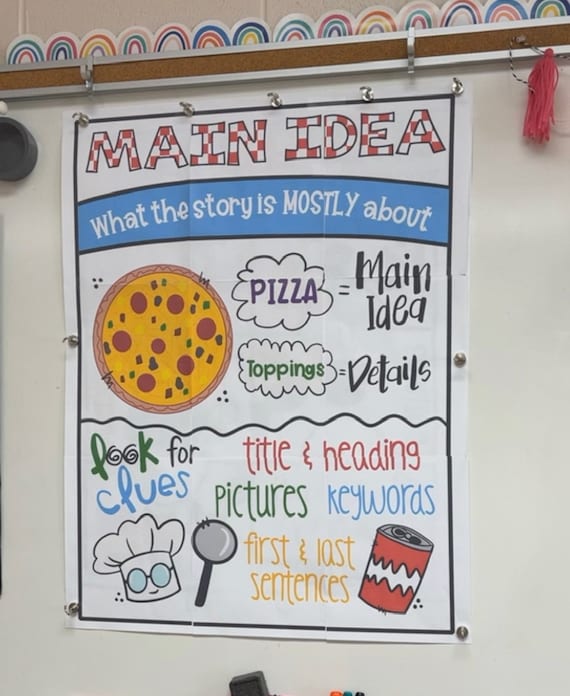 MAIN IDEA
What the story is MOSTLY about
PIZZA = Main Idea
Toppings = Details
look for clues
title & heading
pictures keywords
first & last
sentences